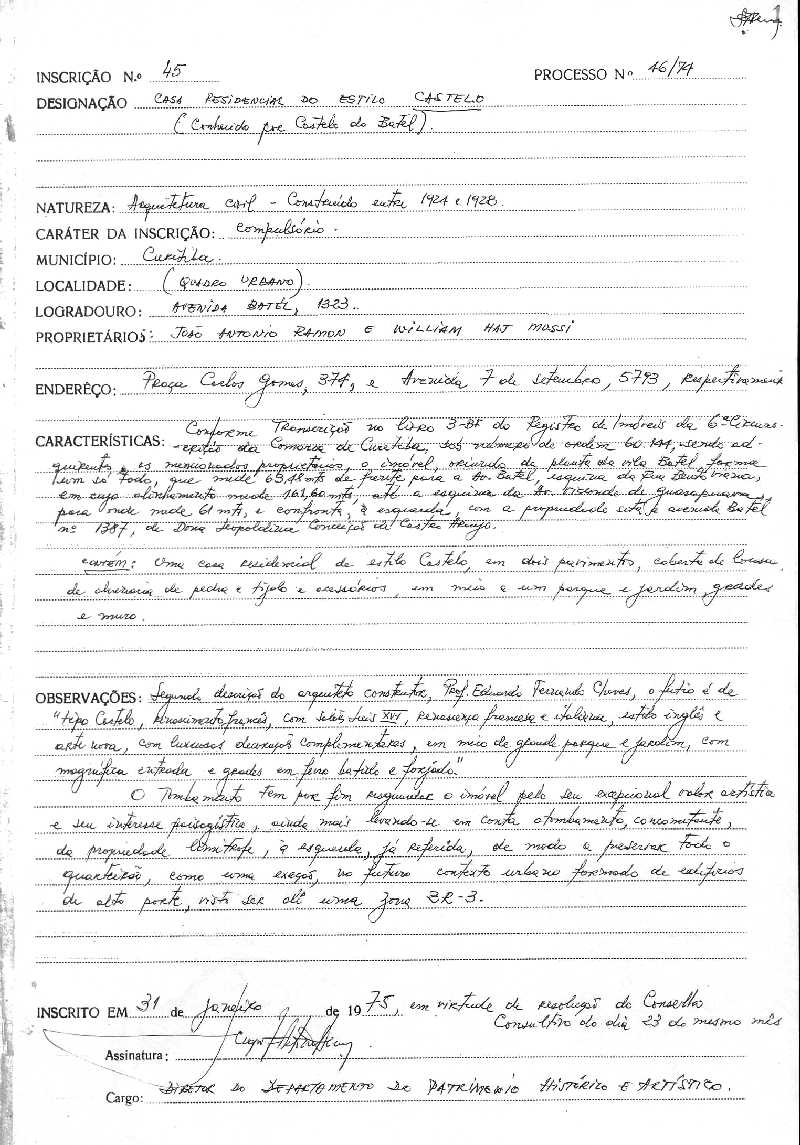 INSCRIÇÃO N.º 45 PROCESSO Nº 46/74
DESIGNAÇÃO CASA RESIDENCIAL DO ESTILO CASTELO
(Conhecido por Castelo do Batel).
NATUREZA: Arquitetura civil - Construído entre 1924 e 1928.
CARÁTER DA INSCRIÇÃO: compulsório.
MUNICÍPIO: Curitiba.
LOCALIDADE: (QUADRO URBANO)
LOGRADOURO: AVENIDA BATEL, 1323.
PROPRIETÁRIOS: JOÃO ANTONIO RAMON E WILLIAM HAJ MUSSI
ENDERÊÇO: Praça Carlos Gomes, 374, e Avenida 7 de setembro, 5793, respectivamente
Conforme Transcrição no livro 3-BF do Registro de Imóveis da 6ª Circuns-
CARACTERÍSTICAS: -crição da Comarca de Curitiba, sob número de ordem 60.144, sendo ad-
quirentes os mencionados proprietários, o imóvel, oriundo da planta da vila Batel, forma
um só todo, que mede 63,48 mts de frente para a Av. Batel, esquina da Rua Bento Viana,
em cujo alinhamento mede 161,60 mts, até a esquina da Av. Visconde de Guarapuava,
para onde mede 61 mts, e confronta, à esquerda, com a propriedade sita à avenida Batel
nº 1387, de Dona Leopoldina Conceição de Castro Araujo.
CONTÉM: Uma casa residencial de estilo Castelo, em dois pavimentos, coberta de lousa,
de alvenaria de pedra e tijolo e acessórios, em meio a um parque e jardim, grades
e muro.
OBSERVAÇÕES: Segundo descrição do arquiteto construtor, Prof. Eduardo Fernando Chaves, o prédio é de
"tipo Castelo, Renascimento francês, com salões Luis XVI, renascença francesa e italiana, estilo inglês e
arte nova, com luxuosas decorações complementares, em meio de grande parque e jardim, com
magnífica entrada e grades em ferro batido e forjado."
O Tombamento tem por fim resguardar o imóvel pelo seu excepcional valor artístico
e seu interesse paisagístico, ainda mais levando-se em conta o tombamento, concomitante,
da propriedade limítrofe, à esquerda, já referida, de modo a preservar todo o
quarteirão, como uma exceção, no futuro contexto urbano formado de edifícios
de alto porte, visto ser ali uma zona ZR-3.
INSCRITO EM 31 de janeiro de 1975, em virtude de resolução do Conselho
Consultivo do dia 23 do mesmo mês
Assinatura:
Cargo: DIRETOR DO DEPARTAMENTO DO PATRIMÔNIO HISTÓRICO E ARTÍSTICO.